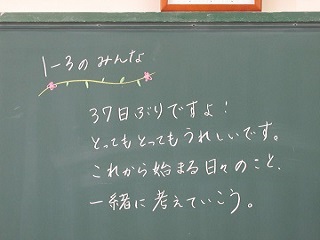 1-3のみんな
37日ぶりですよ!
とってもとってもうれしいです。
これから始まる日々のこと、
一緒に考えていこう。